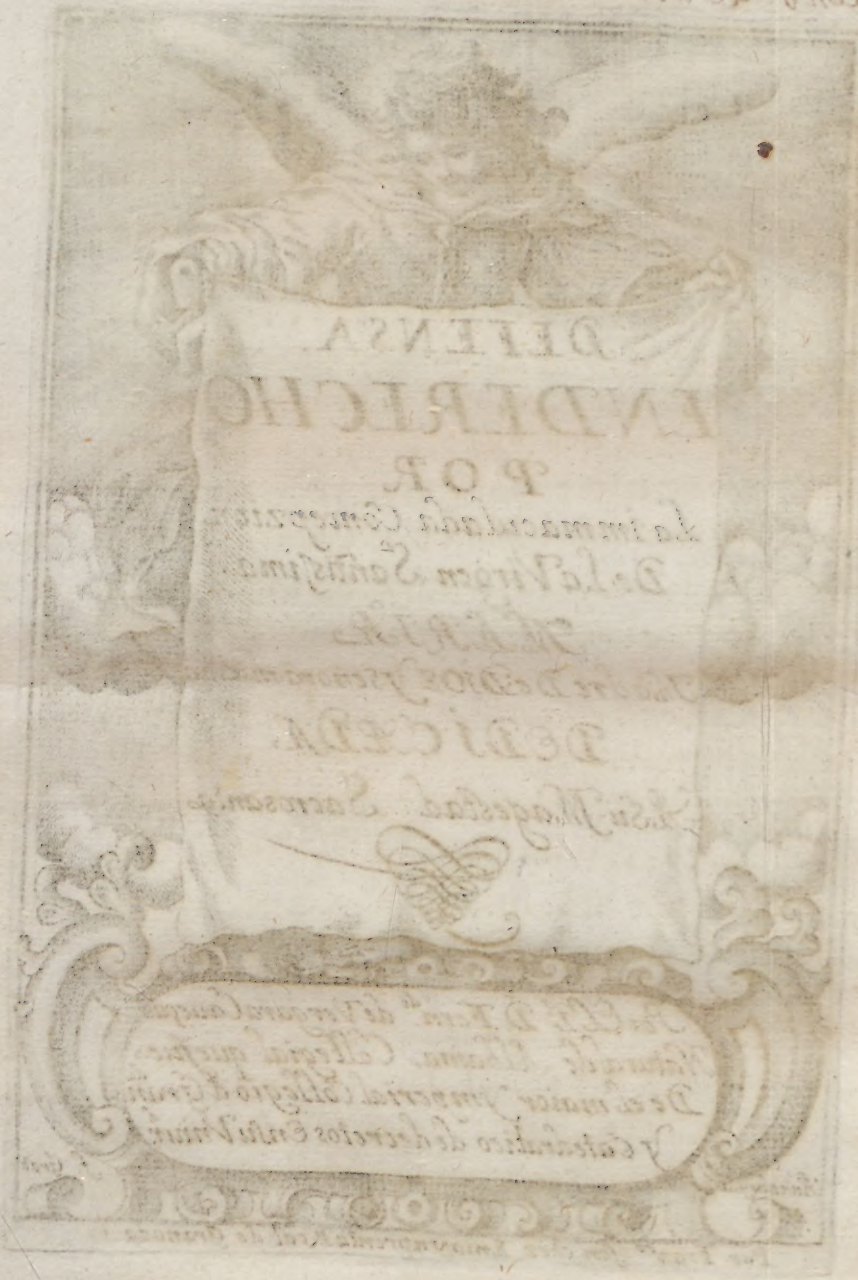 DEFENSA.
EN DERECHO
POR
La immaculada Concepzion
De La Virgen Santissima
MARIA
Madre De DIOS y Senora nra
DEDICADA
A Su Magestad Sacrosanta
Por el L.do D. Fern.do de Vergara
Natural de Alhama, Collegial que fue
De el maior ymperial Collegio d Gran.
y Catedratico de decretos En su Vniur.
Real de Granada